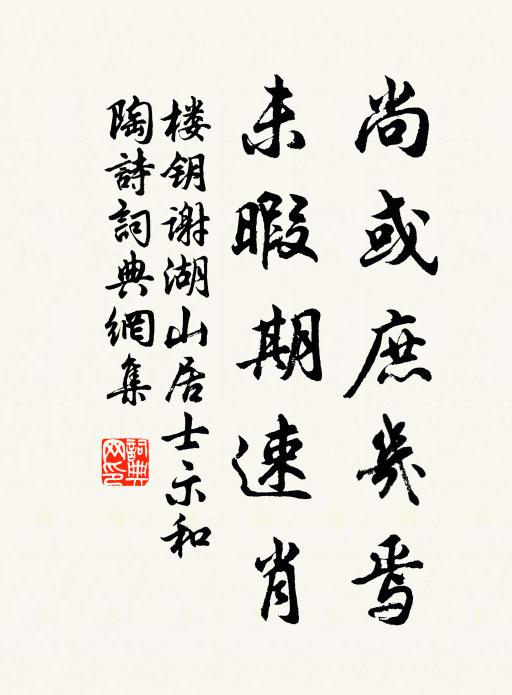 尚或庶幾焉
未暇期速肖
楼钥谢湖山居士示和
陶詩詞典網集
詞典
网印